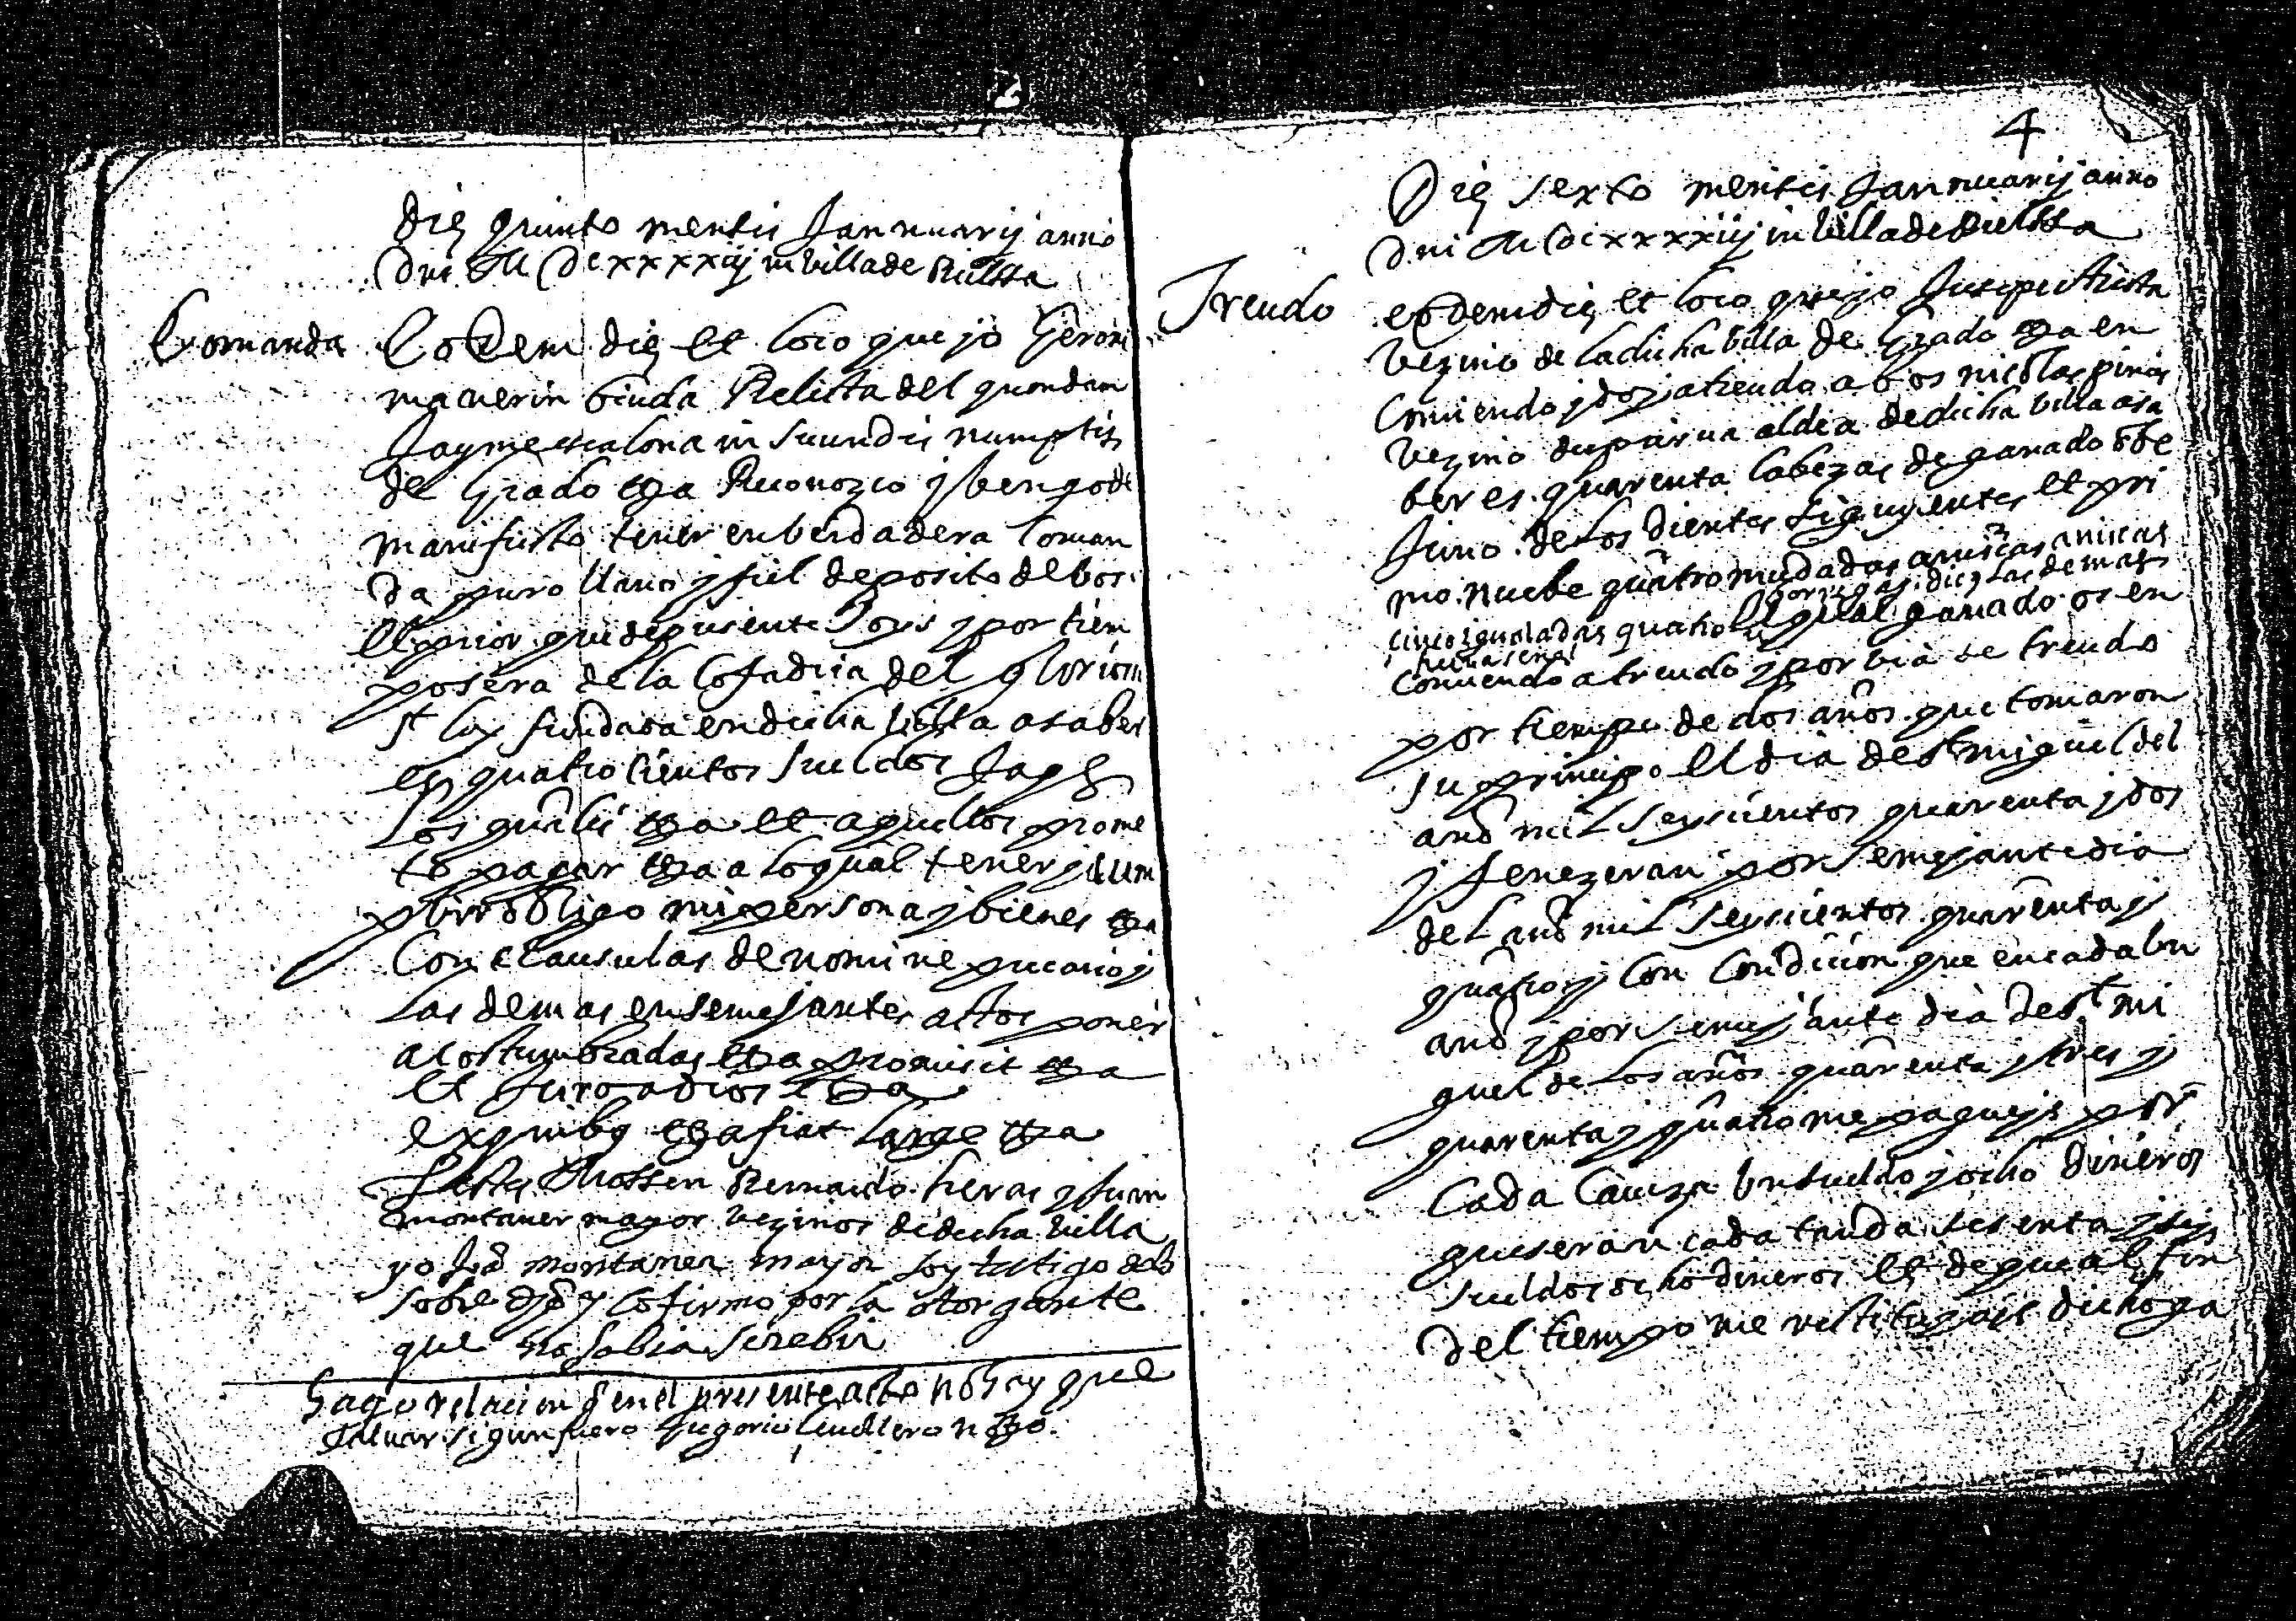 die quinto mensis Jannuarij anni
Dni M Dcxxxxiij in villa de
Comanda Eodem die et loco que jo Geroni
ma nerin biuda Relicta del quondam
Jayme escalona in secundis numptis
de Grado etza Reconozco j bengo de
manifiesto tener en berdadera Coman
da puro llano j fiel deposito de bos
el prior que de presente soys j por tiem
po sera de la Cofadria del glorioss
St loy fundada en dicha billa a saber
es quatro cientos sueldos Jaqs
Los quales etza et aquellos prome
to pagar etza a lo qual tener j cum
plir obligo mi persona j bienes etza
Con clausulas de nomine precario j
las demas en semejantes actos poner
acostumbradas etza promisit etza
et juro a dios etza
ex quibus etza fiat large etza
Testes Mossen Bernardo heras j Juan
montaner mayor vezinos de dicha villa
yo Juo montaner mayor soy testigo de lo
sobre djo y lo firmo por la otorgante
que no sabia screbir
Hago relacion q en el presente acto no hay que
saluar sigun fuero notro.
4
Die sexto mensis Jannuarij anno
Dni M Dcxxxxiij in villa de
Treudo eodem die et loco que jo Jusepe
vezino de la dicha billa de Grado etza en
Comiendo j doj a treudo a bos nicolas
vezino de aldea de dicha billa a sa
ber es quarenta Cabezas de ganado obe
juno de los dientes siguientes et pri
mo nuebe quatromudadas
cinco igualadas quatro borregas diez las demas
El qual ganado os en
Comiendo a treudo j por bia de treudo
por tiempo de dos años que tomaron
su principio el dia de st miguel del
año mil seyscientos quarenta j dos
j fenezeran por semejante dia
del año mil seyscientos quarenta j
quatro j con condicion que en cada bn
año j por semejante dia de st mi
guel de los años quarenta j tres j
quarenta j quatro me pagueys por
Cada Caueza bn sueldo j ocho dineros
que seran cada tanda sesenta j seys
sueldos ocho dineros et de que al fin
del tiempo me restituyays dicho ga